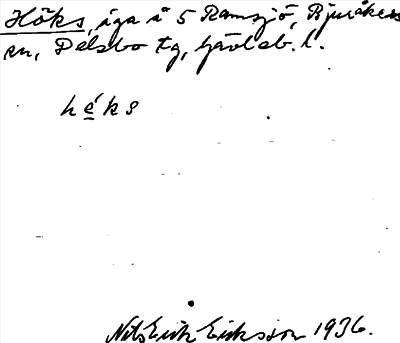 Höks, äga å 5 Ramsjö, Bjuråkers
sn, Delsbo tg, Gävleb. l.
hé̱ks
Nils Erik Eriksson 1936.